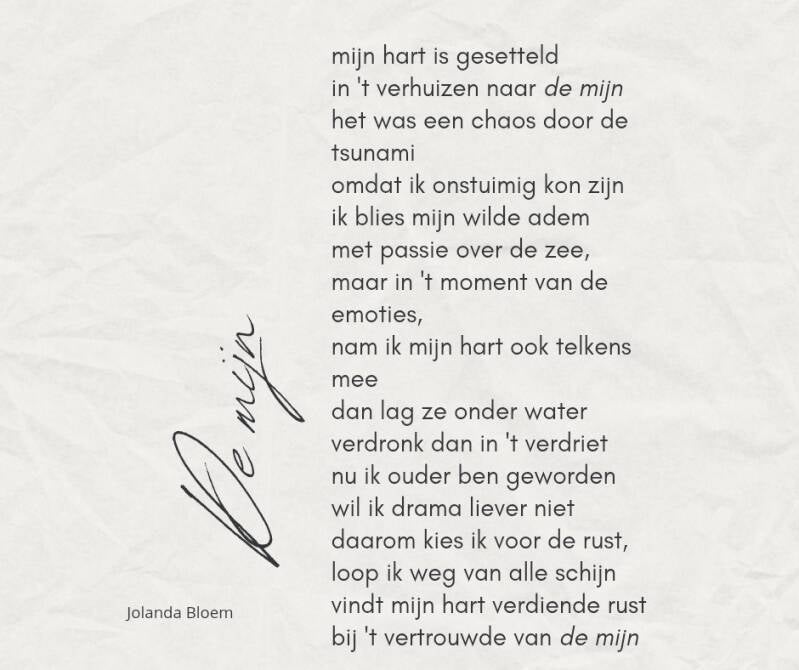 mijn hart is gesetteld
in 't verhuizen naar de mijn
het was een chaos door de
tsunami
omdat ik onstuimig kon zijn
ik blies mijn wilde adem
met passie over de zee,
maar in 't moment van de
emoties,
nam ik mijn hart ook telkens
mee
dan lag ze onder water
verdronk dan in 't verdriet
nu ik ouder ben geworden
wil ik drama liever niet
daarom kies ik voor de rust,
loop ik weg van alle schijn
vindt mijn hart verdiende rust
bij 't vertrouwde van de mijn
De mijn
Jolanda Bloem